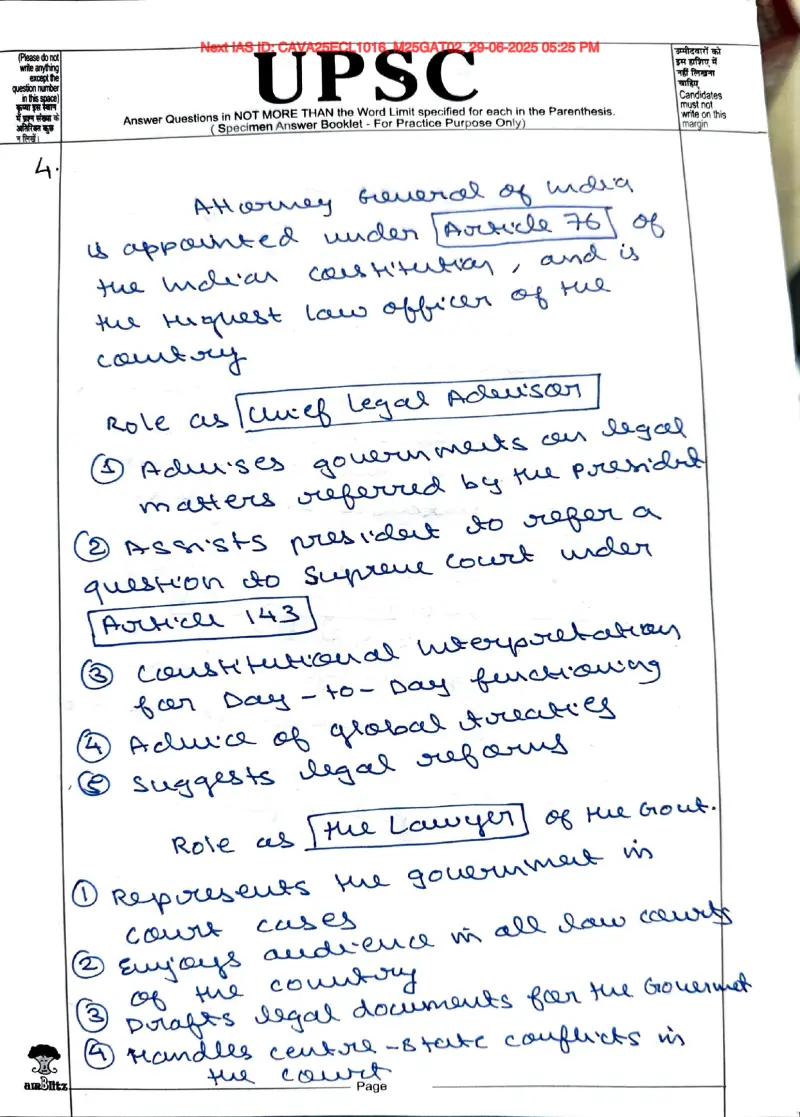 Next IAS ID: CAVA25ECL1016_M25GAT02_29-06-2025 05:25 PM
(Please do not
write anything
except the
question number
in this space)
कृपया इस स्थान
में प्रश्न संख्या के
अतिरिक्त कुछ
न लिखें।
UPSC
Answer Questions in NOT MORE THAN the Word Limit specified for each in the Parenthesis.
( Specimen Answer Booklet - For Practice Purpose Only)
उम्मीदवारों को
इस हाशिए में
नहीं लिखना
चाहिए
Candidates
must not
write on this
margin
4.
Attorney General of India
is appointed under Article 76 of
the Indian constitution, and is
the highest law officer of the
country
Role as Chief Legal Advisor
① Advises governments on legal
matters referred by the president
② Assists president to refer a
question to Supreme Court under
Article 143
③ Constitutional interpretation
for Day-to-Day functioning
④ Advice of global treaties
⑤ Suggests legal reforms
Role as the Lawyer of the Govt.
① Represents the government in
court cases
② Enjoys audience in all law courts
of the country
③ Drafts legal documents for the Government
④ Handles centre-state conflicts in
the court
am3litz
Page